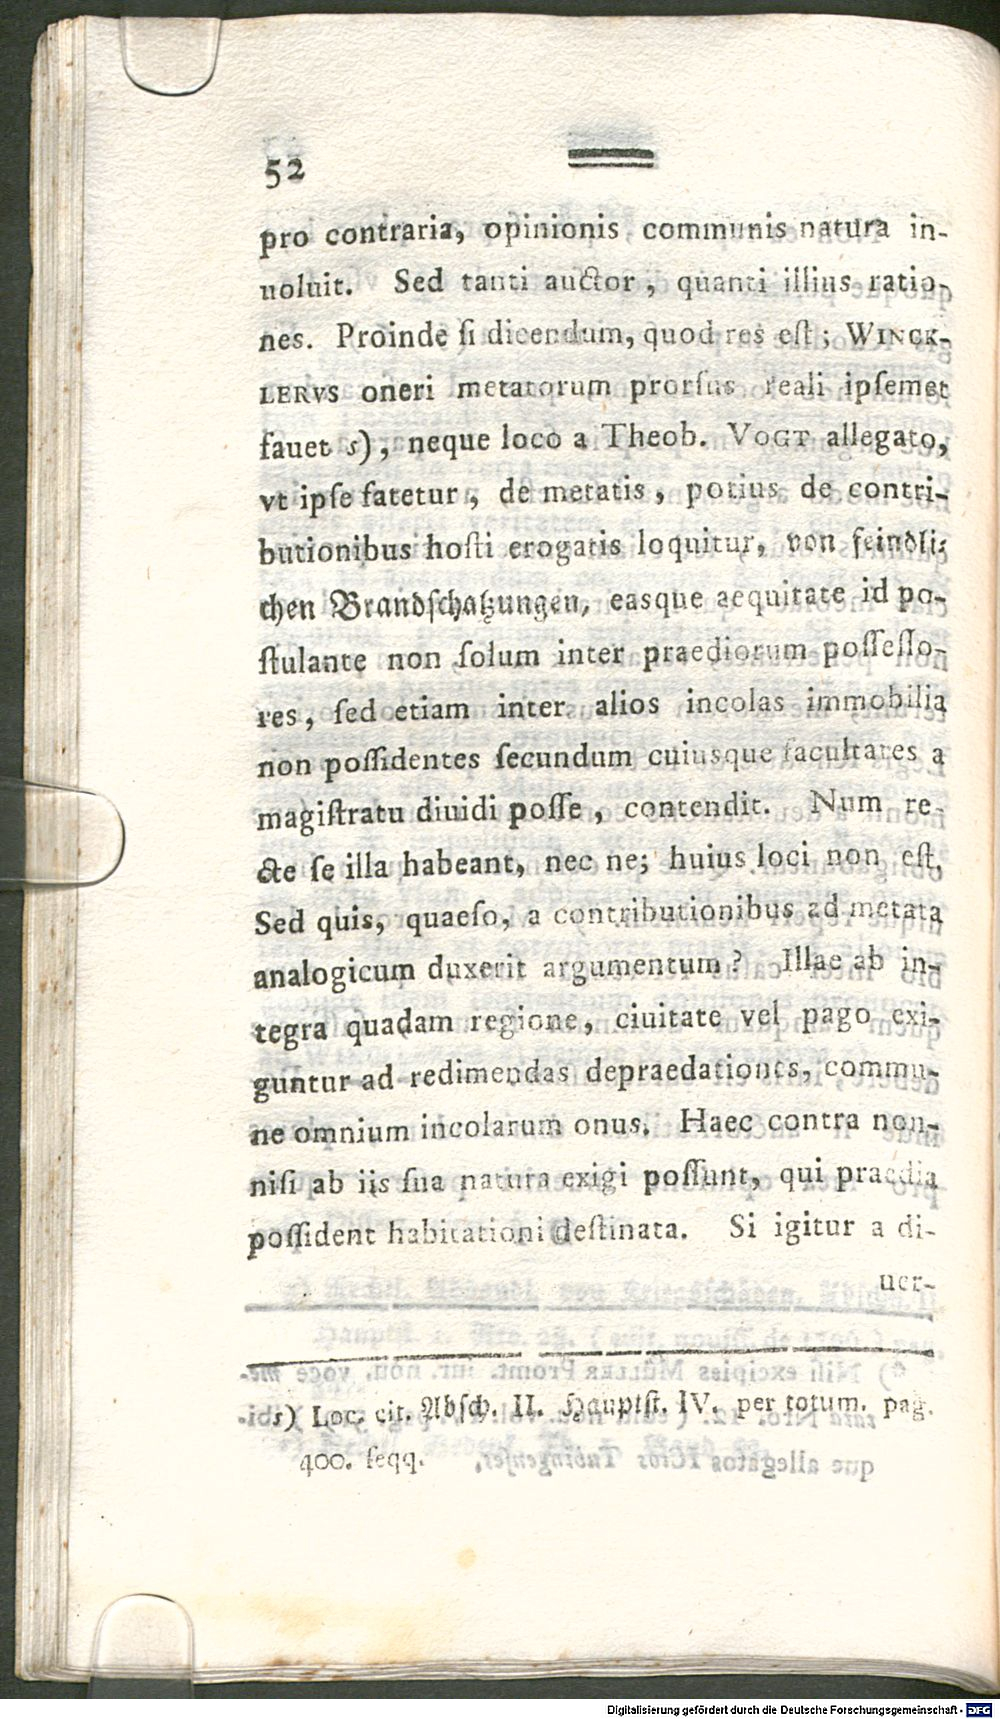 52
pro contraria, opinionis communis natura in-
uoluit. Sed tanti auctor, quanti illius ratio-
nes. Proinde ſi dicendum, quod res eſt; WINCK-
LERVS oneri metatorum prorſus reali ipſemet
fauet s), neque loco a Theob. VOGT allegato,
vt ipſe fatetur, de metatis, potius de contri-
butionibus hoſti erogatis loquitur, von feindli-
chen Brandſchatzungen, easque aequitate id po-
ſtulante non ſolum inter praediorum poſſeſſo-
res, ſed etiam inter alios incolas immobilia
non poſſidentes ſecundum cuiusque facultates a
magiſtratu diuidi poſſe, contendit. Num re-
cte ſe illa habeant, nec ne; huius loci non eſt.
Sed quis, quaeſo, a contributionibus ad metata
analogicum duxerit argumentum? Illae ab in-
tegra quadam regione, ciuitate vel pago exi-
guntur ad redimendas depraedationes, commu-
ne omnium incolarum onus. Haec contra non-
niſi ab iis ſua natura exigi poſſunt, qui praedia
poſſident habitationi deſtinata. Si igitur a di-
uer-
s) Loc. cit. Abſch. II. Hauptſt. IV. per totum. pag.
400. ſeqq.
Digitalisierung gefördert durch die Deutsche Forschungsgemeinschaft - DFG